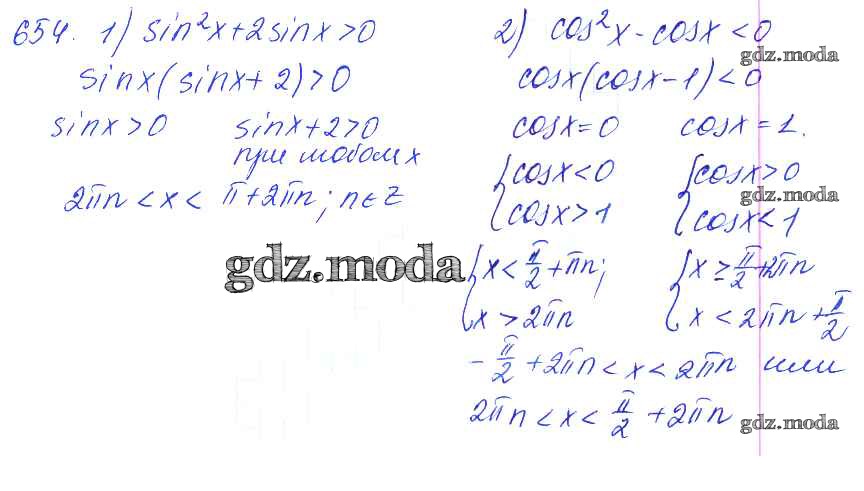 654. 1) sin²x+2sinx>0
sinx(sinx+2)>0
sinx>0 sinx+2>0
при любом x
2πn<x< π+2πn; n∈Z
2) cos²x-cosx<0
gdz.moda
cosx(cosx-1)<0
cosx=0 cosx=1.
{cosx<0 {cosx>0
gdz.moda
{cosx>1 {cosx<1
gdz.moda
{x<π/2+πn; {x≥π/2+2πn
{x>2πn {x<2πn+π/2
-π/2+2πn<x<2πn или
2πn<x<π/2+2πn
gdz.moda